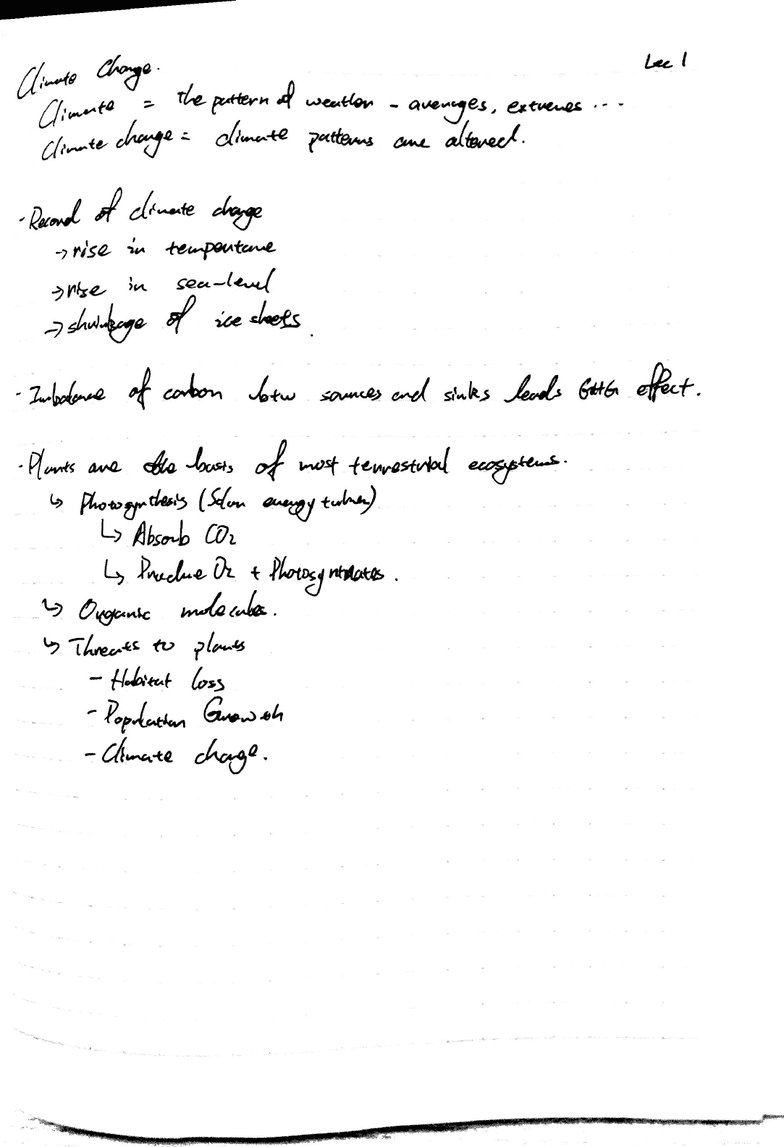 Lec 1
Climate Change.
Climate = the pattern of weather - averages, extremes ...
Climate change = climate patterns are altered.
· Record of climate change
→ rise in temperature
→ rise in sea-level
→ shrinkage of ice sheets.
· Imbalance of carbon btw sources and sinks leads GHG effect.
· Plants are the basis of most terrestrial ecosystems.
↳ Photosynthesis (Solar energy)
↳ Absorb CO2
↳ Produce O2 + Photosynthates.
↳ Organic molecules.
↳ Threats to plants
- Habitat loss
- Population Growth
- Climate change.